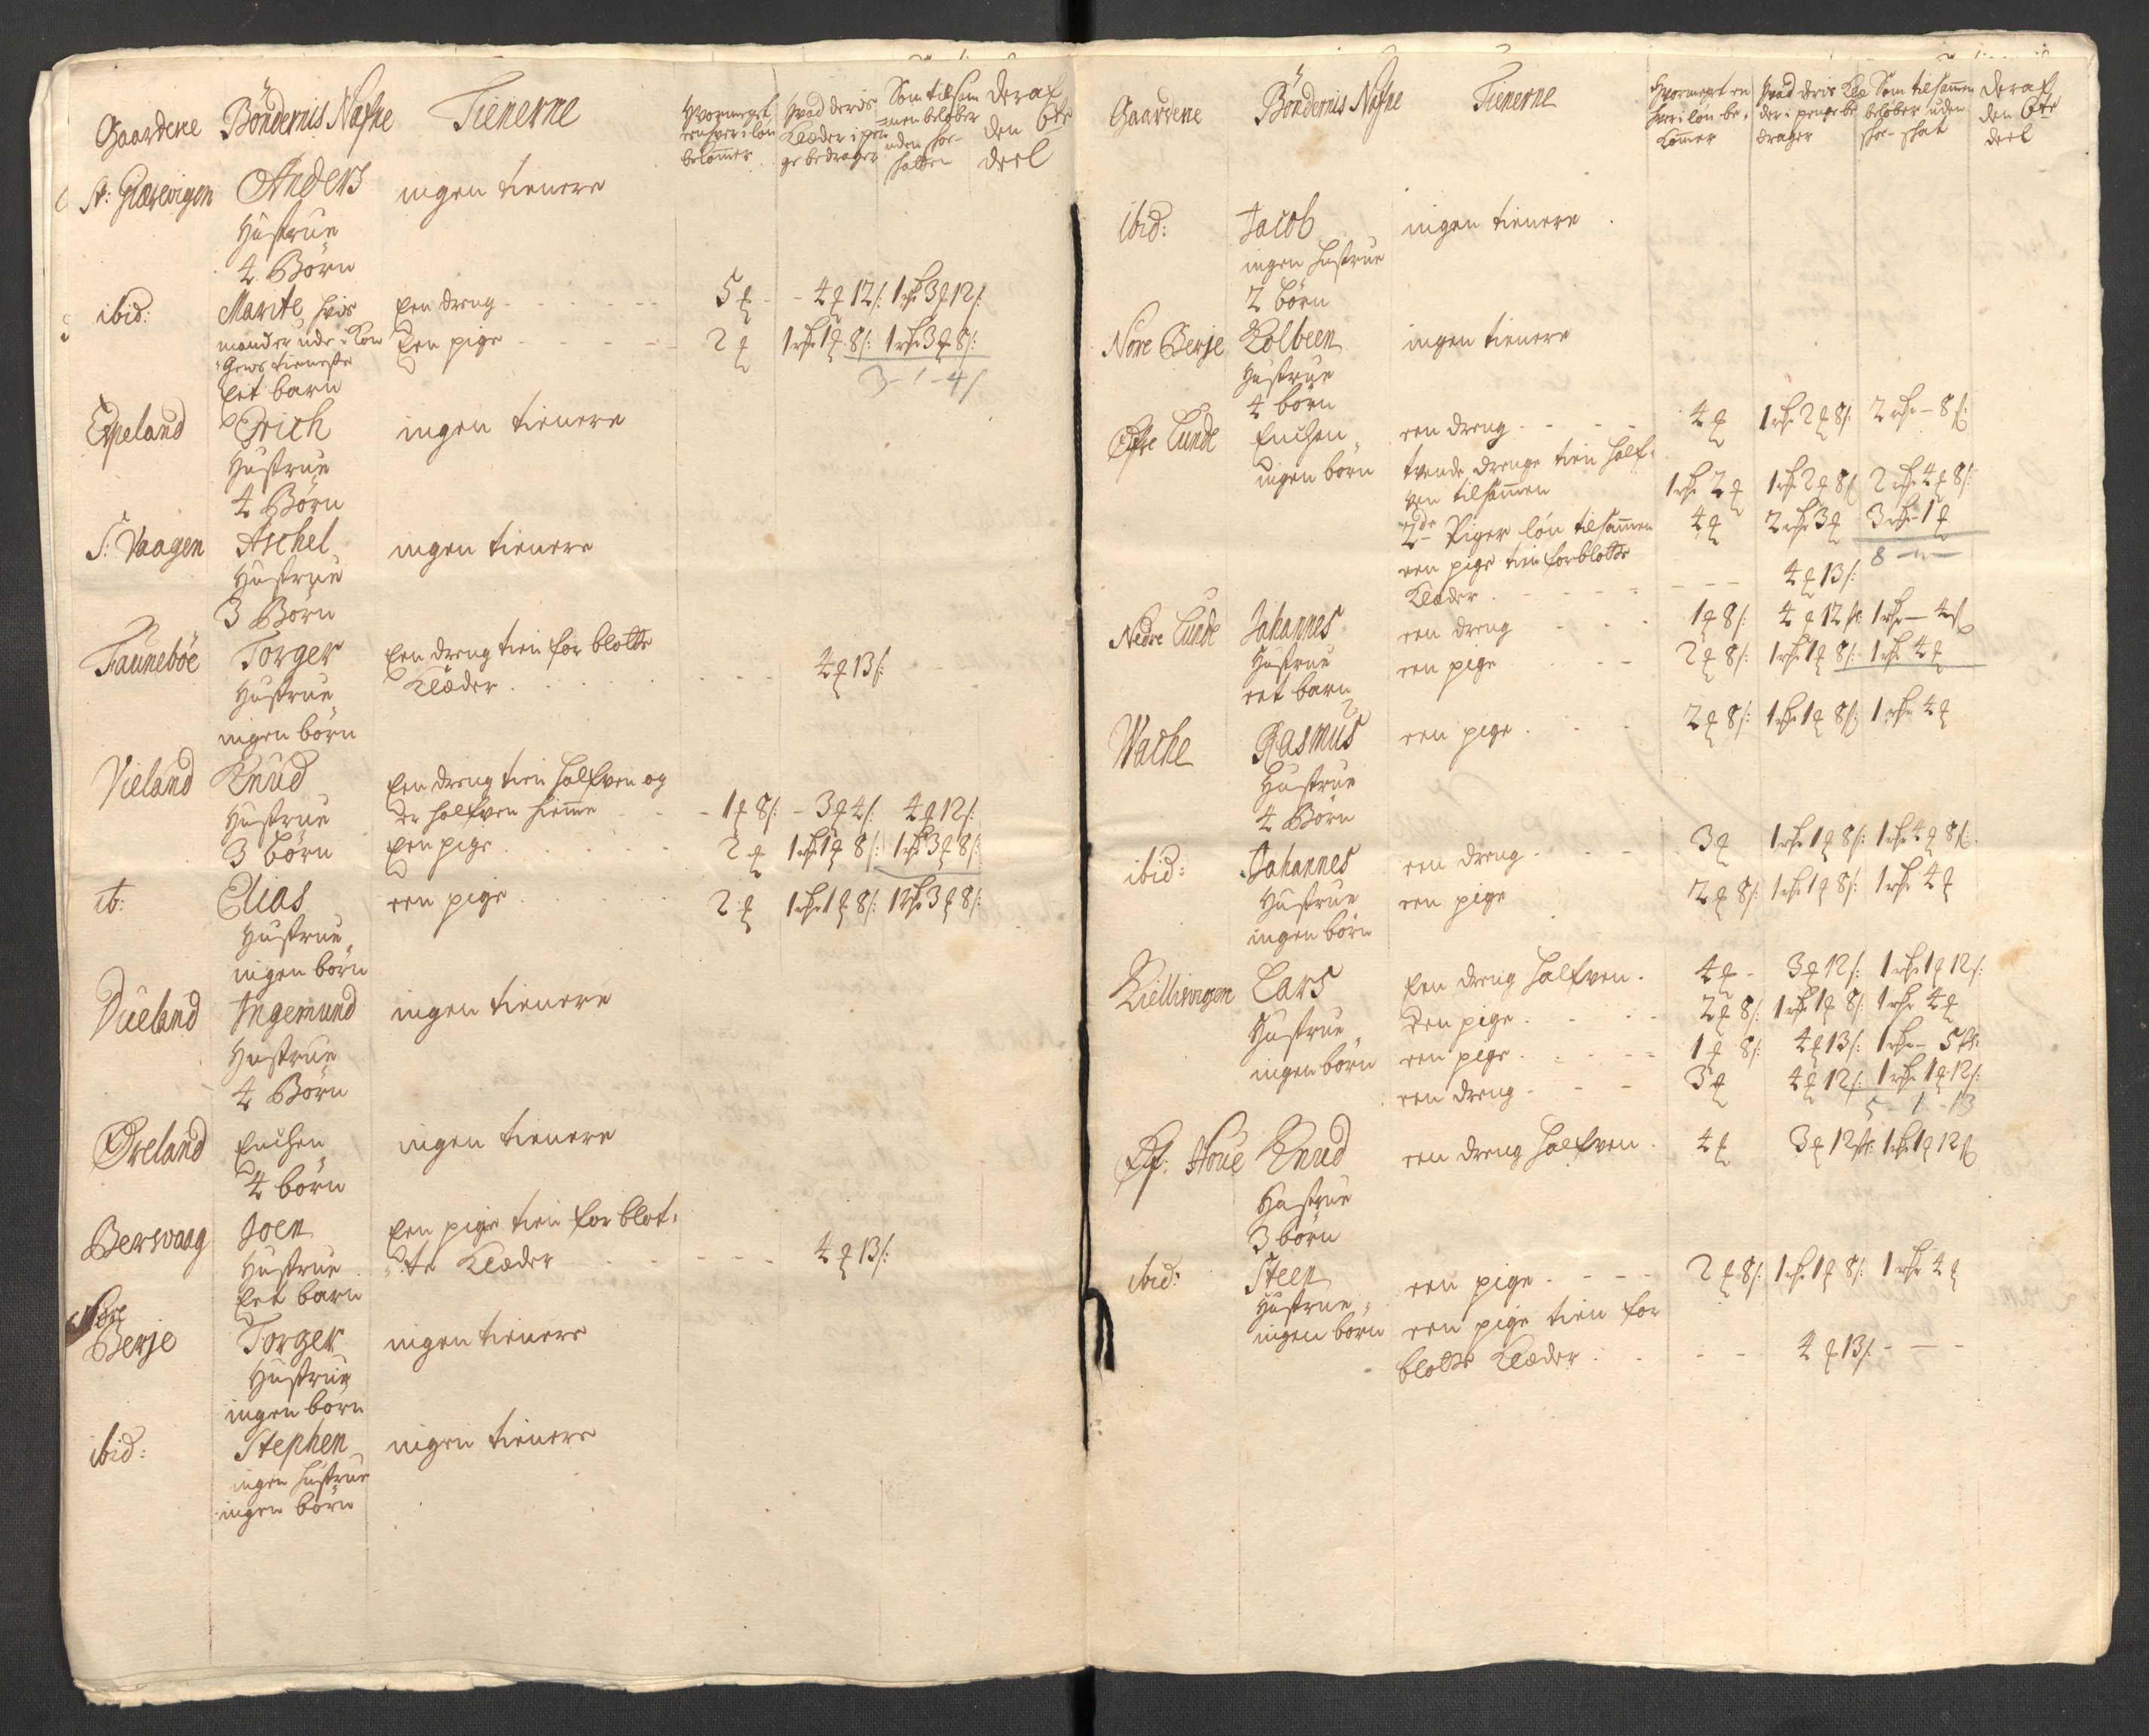 Gaardene Böndernis Nafne Tienerne Hvormeget enhver i lön bekommer Hvad deris Klæder i penge bedrager Som tilsammen beløber uden skoe-skatten Deraf den 6te deel
St: Grærvigen Anders ingen tienere
Hustrue
4 Börn
ibid: Marite hvis Een dreng 5 - 4 12 s: 1 rd 3 12 s:
mand er ude i Kon- Een pige 2 1 rd 1 8 s: 1 rd 3 8 s:
gens tieneste 3 - 1 - 4 s
Eet barn
Espeland Erich ingen tienere
Hustrue
4 Börn
S: Vaagen Aschel ingen tienere
Hustrue
3 Börn
Fauneböe Torger Een dreng tien for blotte
Hustrue Klæder 4 13 s:
ingen börn
Vieland Knud Een dreng tien halfven og
Hustrue de halfven hiemme 1 8 s: - 3 4 s: 4 12 s:
3 börn Een pige 2 1 rd 1 8 s: 1 rd 3 8 s:
ib: Elias een pige 2 1 rd 1 8 s: 1 rd 3 8 s:
Hustrue
ingen börn
Dueland Ingemund ingen tienere
Hustrue
4 Börn
Öreland Enchen ingen tienere
4 börn
Bersvaag Joen Een pige tien for blot-
Hustrue te Klæder 4 13 s:
Eet barn
Söre
Berje Torger ingen tienere
Hustrue
ingen börn
ibid: Stephen ingen tienere
ingen hustrue
ingen börn
Gaardene Böndernis Nafne Tienerne Hvormeget en hver i lön bekommer Hvad deris Klæder i penge bedrager Som tilsammen belöber uden skoe-skat Deraf den 6te deel
ibid: Jacob ingen tienere
ingen hustrue
2 börn
Nore Berje Kolbeen ingen tienere
Hustrue
4 börn
Öfre Lunde Enchen een dreng 4 1 rd 2 8 s: 2 rd - 8 s:
ingen börn tvende drenge tien half-
ven tilsammen 1 rd 2 1 rd 2 8 s 2 rd 4 8 s:
2de Piger lön tilsammen 4 2 rd 3 3 rd 1
een pige tien for blotte 8 - -
Klæder 4 13 s:
Nedre Lunde Johannes een dreng 1 8 s: 4 12 s: 1 rd - 4 s
Hustrue een pige 2 8 s: 1 rd 1 8 s: 1 rd 4
eet barn
Wathe Rasmus een pige 2 8 s: 1 rd 1 8 s: 1 rd 4
Hustrue
4 Börn
ibid: Johannes een dreng 3 1 rd 1 8 s: 1 rd 4 8 s:
Hustrue een pige 2 8 s: 1 rd 1 8 s: 1 rd 4
ingen börn
Kiellesvigen Lars Een dreng halfven 4 - 3 12 s: 1 rd 1 12 s:
Hustrue Een pige 2 8 s: 1 rd 1 8 s: 1 rd 4
ingen börn een pige 1 8 s: 4 13 s: 1 rd - 5 s:
een dreng 3 4 12 s: 1 rd 1 12 s:
5 - 1 - 13
Knud een dreng halfven 4 3 12 s: 1 rd 1 12 s
Hustrue
3 börn
ibid: Steen een pige 2 8 s: 1 rd 1 8 s: 1 rd 4
Hustrue een pige tien for
ingen börn blotte Klæder 4 13 s: